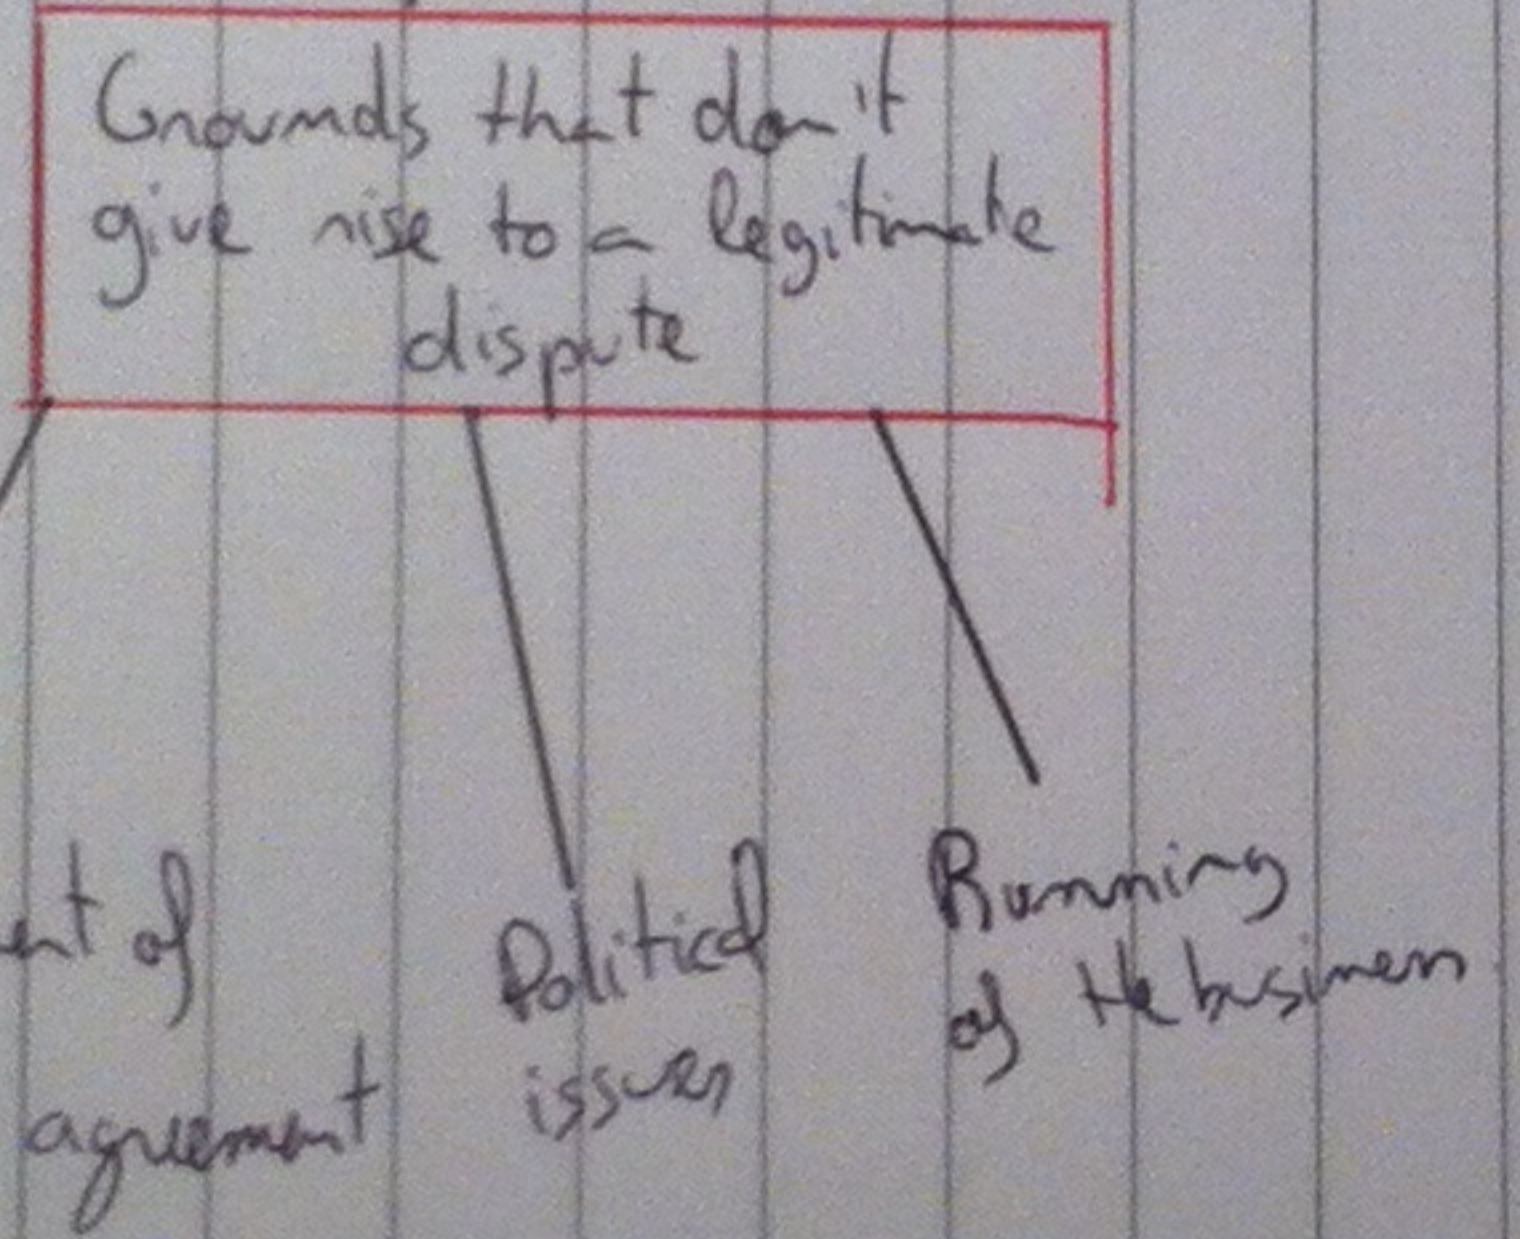 Grounds that don't
give rise to a legitimate
dispute
ent of
agreement
Political
issues
Running
of the business